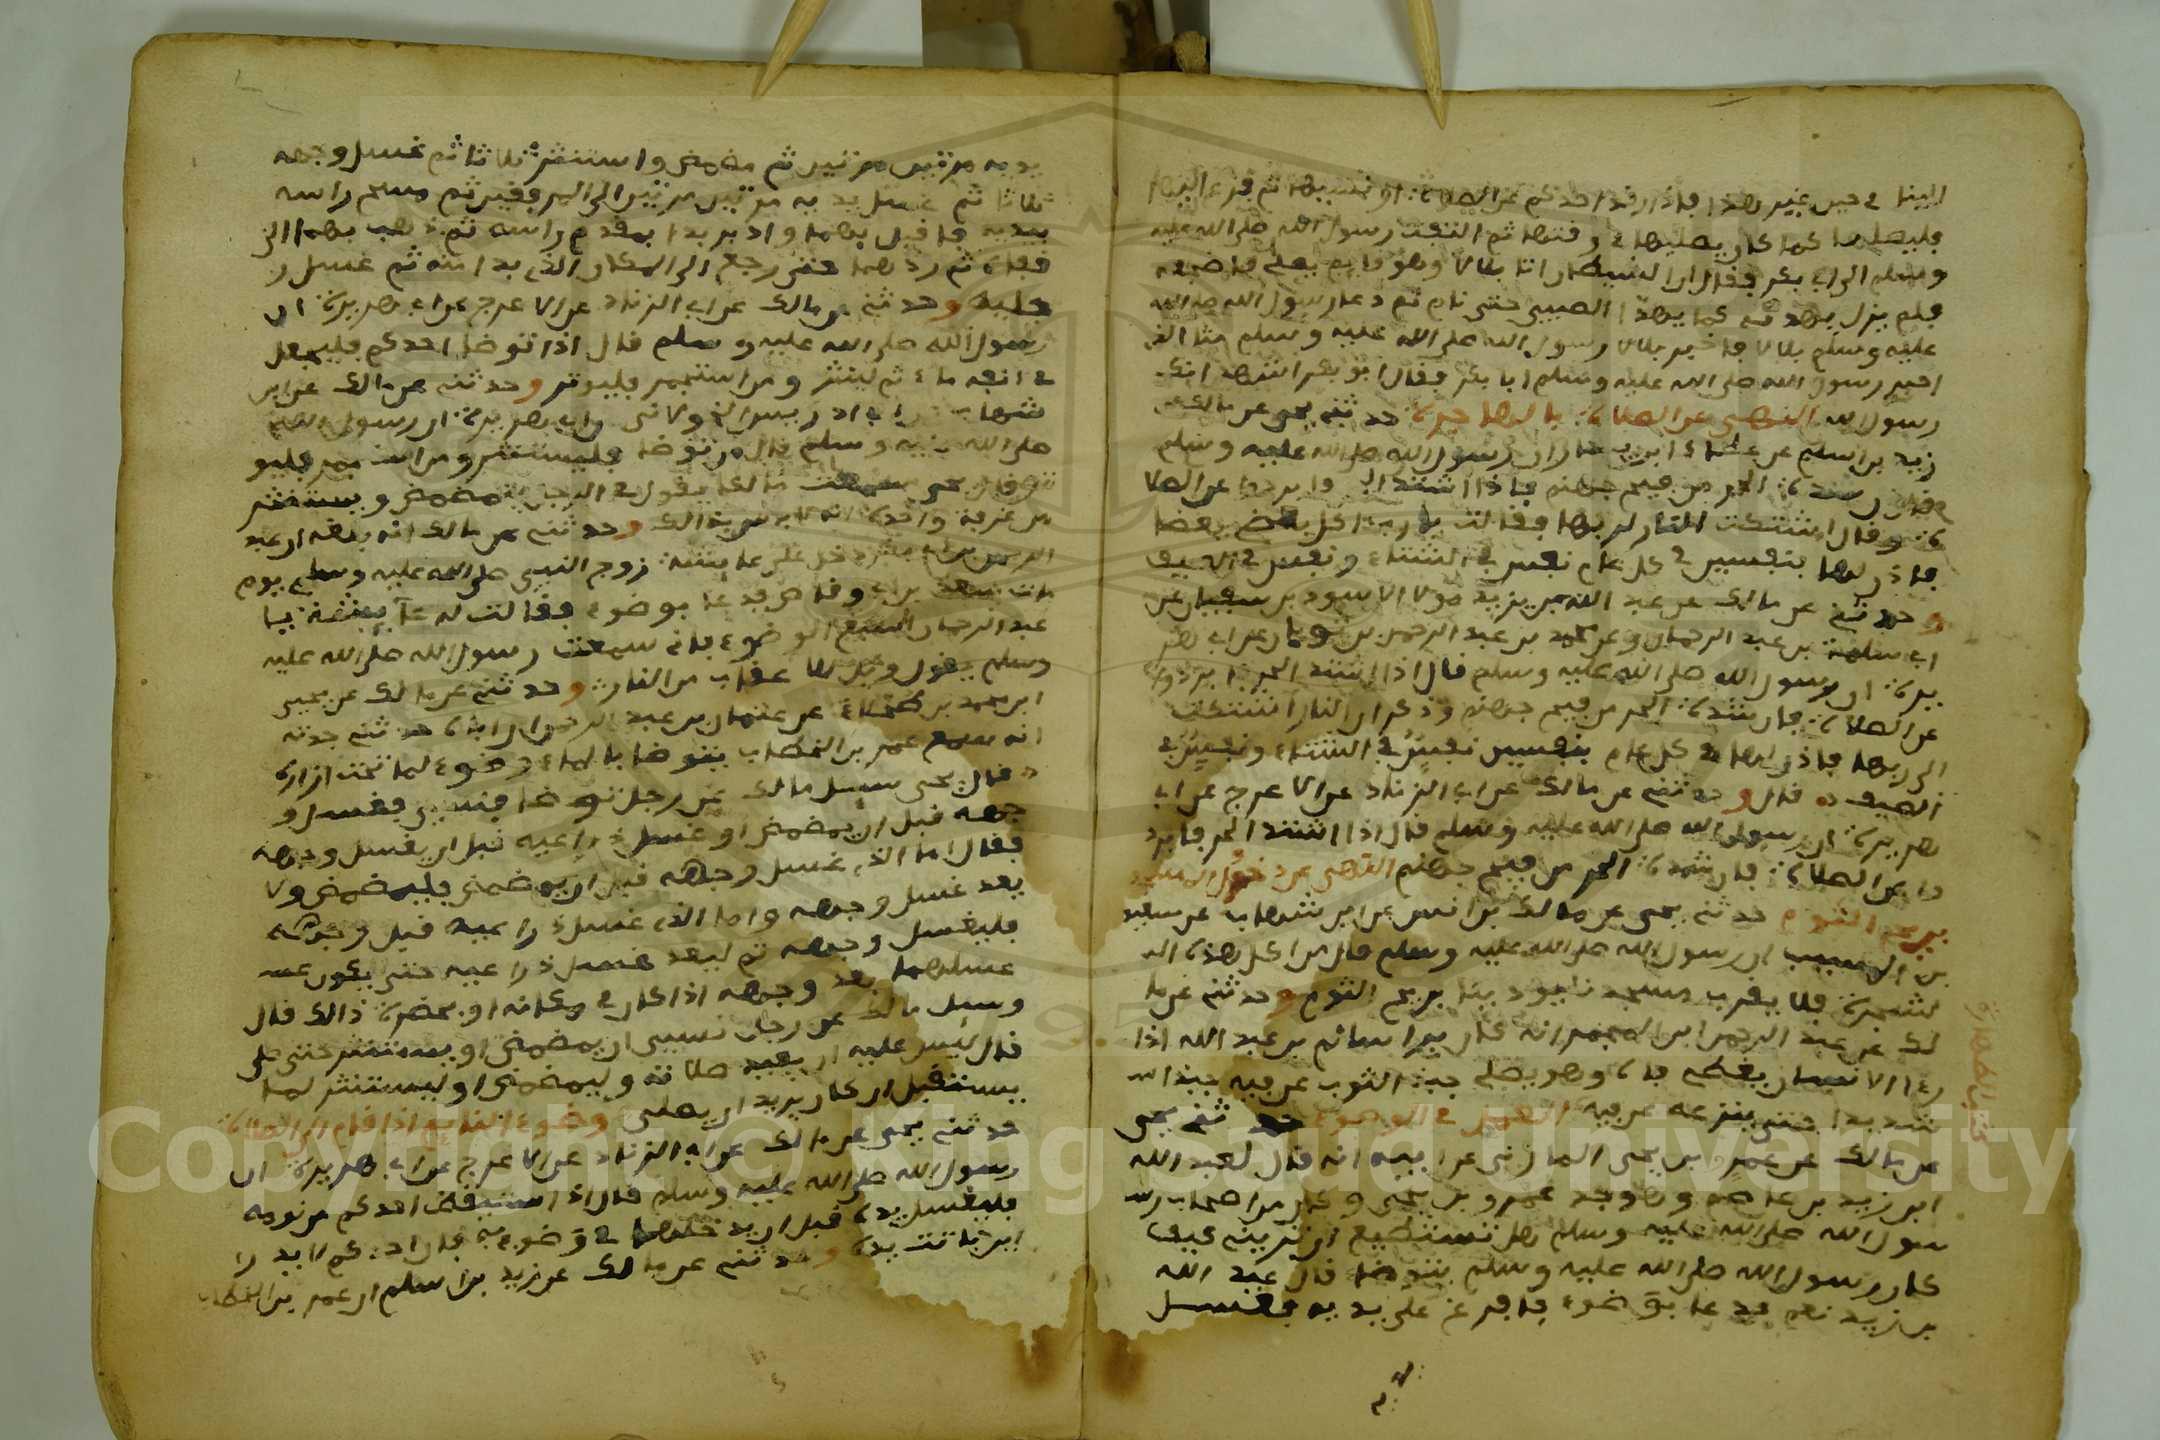 الينا في حين غير هذا فاذا رقد احدكم عن الصلاة او نسيها ثم فزع اليها
فليصلها كما كان يصليها في وقتها ثم التفت رسول الله صلى الله عليه
وسلم الى ابي بكر فقال ان الشيطان اتا بلالا وهو قايم يصلي فاضجعه
فلم يزل يهدئه كما يهدا الصبي حتى نام ثم دعا رسول الله صلى الله
عليه وسلم بلالا فاخبر بلال رسول الله صلى الله عليه وسلم مثل الذي
اخبر رسول الله صلى الله عليه وسلم ابا بكر فقال ابو بكر اشهد انك
رسول الله النهي عن الصلاة بالهاجرة حدثني يحيى عن مالك عن
زيد بن اسلم عن عطاء بن يسار ان رسول الله صلى الله عليه وسلم
قال ان شدة الحر من فيح جهنم فاذا اشتد الحر فابردوا عن الصلا
ة وقال اشتكت النار الى ربها فقالت يا رب اكل بعضي بعضا
فاذن لها بنفسين في كل عام نفس في الشتاء ونفس في الصيف
وحدثني عن مالك عن عبد الله بن يزيد مولا الاسود بن سفيان عن
ابي سلمة بن عبد الرحمان وعن محمد بن عبد الرحمن بن ثوبان عن ابي هر
يرة ان رسول الله صلى الله عليه وسلم قال اذا اشتد الحر فابردوا
عن الصلاة فان شدة الحر من فيح جهنم وذكر ان النار اشتكت
الى ربها فاذن لها في كل عام بنفسين نفس في الشتاء ونفس في
الصيف قال وحدثني عن مالك عن ابي الزناد عن الاعرج عن ابي
هريرة ان رسول الله صلى الله عليه وسلم قال اذا اشتد الحر فابرد
وا عن الصلاة فان شدة الحر من فيح جهنم النهي عن دخول المسجد
بريح الثوم حدثني يحيى عن مالك بن انس عن ابن شهاب عن سعيد
بن المسيب ان رسول الله صلى الله عليه وسلم قال من اكل هذه ال
شجرة فلا يقرب مسجدنا يوذينا بريح الثوم وحدثني عن ما
لك عن عبد الرحمن ابن المجبر انه كان يرا سالم بن عبد الله اذا
را الانسان يغطي فاه وهو يصلي جبذ الثوب عن فيه جبذا
شديدا حتى ينزعه عن فيه العمل في الوضوء حدثني يحيى
عن مالك عن عمرو بن يحيى المازني عن ابيه انه قال لعبد الله
ابن زيد بن عاصم وهو جد عمرو بن يحيى وكان من اصحاب ر
سول الله صلى الله عليه وسلم هل تستطيع ان تريني كيف
كان رسول الله صلى الله عليه وسلم يتوضا قال عبد الله
بن زيد نعم فدعا بوضوء فافرغ على يديه فغسل
كتاب الطهارة
يديه مرتين مرتين ثم مضمض واستنثر ثلاثا ثم غسل وجهه
ثلاثا ثم غسل يديه مرتين مرتين الى المرفقين ثم مسح راسه
بيديه فاقبل بهما وادبر بدا بمقدم راسه ثم ذهب بهما الى
قفاه ثم ردهما حتى رجع الى المكان الذي بدا منه ثم غسل ر
جليه وحدثني عن مالك عن ابي الزناد عن الاعرج عن ابي هريرة ان
رسول الله صلى الله عليه وسلم قال اذا توضا احدكم فليجعل
في انفه ماء ثم لينثر ومن استجمر فليوتر وحدثني عن مالك عن ابن
شهاب عن ابي ادريس الخولاني عن ابي هريرة ان رسول الله
صلى الله عليه وسلم قال من توضا فليستنثر ومن استجمر فليو
تر قال يحيى سمعت مالكا يقول في الرجل يتمضمض ويستنثر
من غرفة واحدة انه لا باس بذالك وحدثني عن مالك انه بلغه ان عبد
الرحمن بن ابي بكر دخل على عائشة زوج النبي صلى الله عليه وسلم يوم
مات سعد بن ابي وقاص فدعا بوضوء فقالت له عائشة يا
عبد الرحمان اسبغ الوضوء فانى سمعت رسول الله صلى الله عليه
وسلم يقول ويل للاعقاب من النار وحدثني عن مالك عن يحيى
ابن محمد بن طحلاء عن عثمان بن عبد الرحمن ان اباه حدثه
انه سمع عمر بن الخطاب يتوضا بالماء وضوءا لما تحت ازاره
قال يحيى سيل مالك عن رجل توضا فنسي فغسل و
جهه قبل ان يمضمض او غسل ذراعيه قبل ان يغسل وجهه
فقال اما الذي غسل وجهه قبل ان يمضمض فليمضمض ولا
يعد غسل وجهه واما الذي غسل ذراعيه قبل وجهه
فليغسل وجهه ثم ليعد غسل ذراعيه حتى يكون
غسلهما بعد وجهه اذا كان في مكانه او بحضرة ذالك قال
وسيل مالك عن رجل نسي ان يمضمض او يستنثر حتى صلى
قال ليس عليه ان يعيد صلاته وليمضمض او ليستنثر لما
يستقبل ان كان يريد ان يصلي وضوء النايم اذا قام الى الصلاة
حدثني يحيى عن مالك عن ابي الزناد عن الاعرج عن ابي هريرة ان
رسول الله صلى الله عليه وسلم قال اذا استيقظ احدكم من نومه
فليغسل يده قبل ان يدخلها في وضوئه فان احدكم لا يدرا
اين باتت يده وحدثني عن مالك عن زيد بن اسلم ان عمر بن الخطاب
Copyright © King Saud University